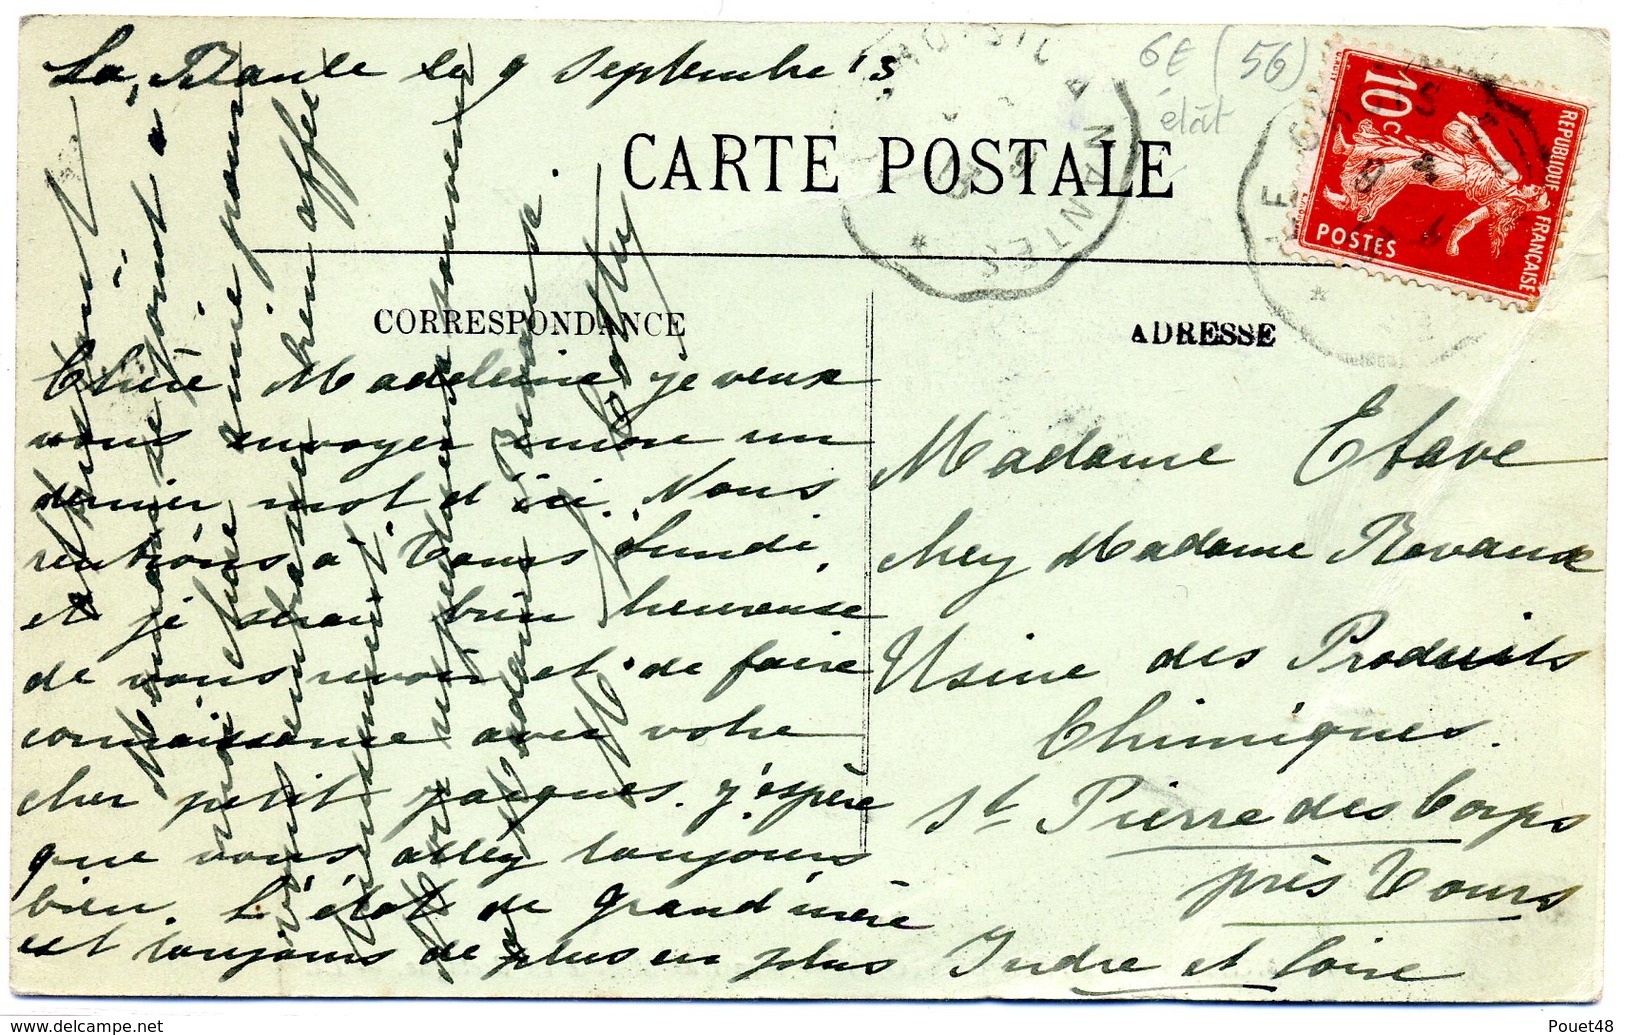 La Baule le 9 Septembre 13
CARTE POSTALE
6E (56)
état
10c
REPUBLIQUE FRANÇAISE
POSTES
NANTES
CORRESPONDANCE
ADRESSE
Chère Madeleine je veux
vous envoyer encore un
dernier mot d'ici. Nous
rentrons à Tours Lundi,
et je serai bien heureuse
de vous revoir et de faire
connaissance avec votre
cher petit Jacques. J'espère
que vous allez toujours
bien. L'état de Grand'mère
est toujours de plus en plus
Madame Etave
chez Madame Ravaux
Usine des Produits
Chimiques.
St Pierre des Corps
près Tours
Indre et Loire
amie pour
vous embrasser bien affec
tueusement.
Mon respectueux souvenir
à Madame Ravaux.
Pouet48